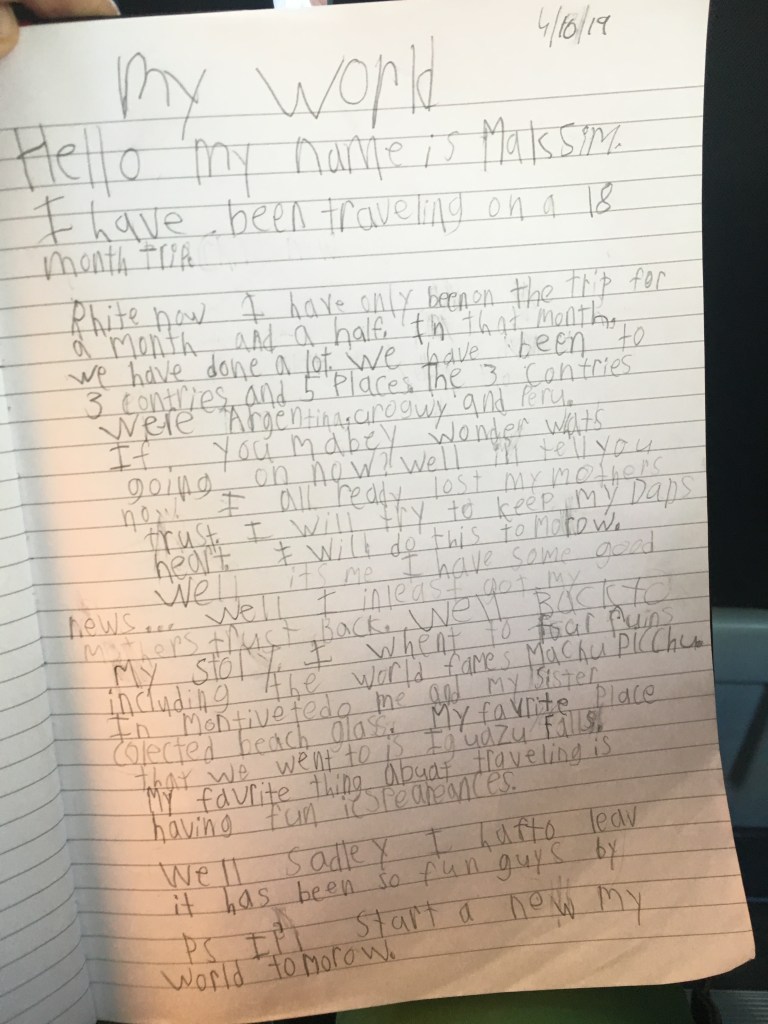 4/18/19
My World
Hello my name is Maksim.
I have been traveling on a 18
month trip.
Rhite now I have only been on the trip for
a month and a half. In that month,
we have done a lot. We have been to
3 contries and 5 places. The 3 contries
were Argentina, uroguiy and Peru.
If you mabey wonder wats
going on now? Well I'll tell you
now! I all ready lost my mothers
trust. I will try to keep my Dads
heart. I will do this tomorow.
Well its me I have some good
news... Well I inleast got my
mothers trust Back. Well Back to
my story. I whent to four ruins
including the world fames Machu Picchu.
In Montivetedo me and my sister
colected beach glass. My favrite place
that we went to is Iguazu falls.
My favrite thing abuat traveling is
having fun icspeareances.
Well sadley I hafto leav
it has been so fun guys by
Ps I'll start a new my
world tomorow.